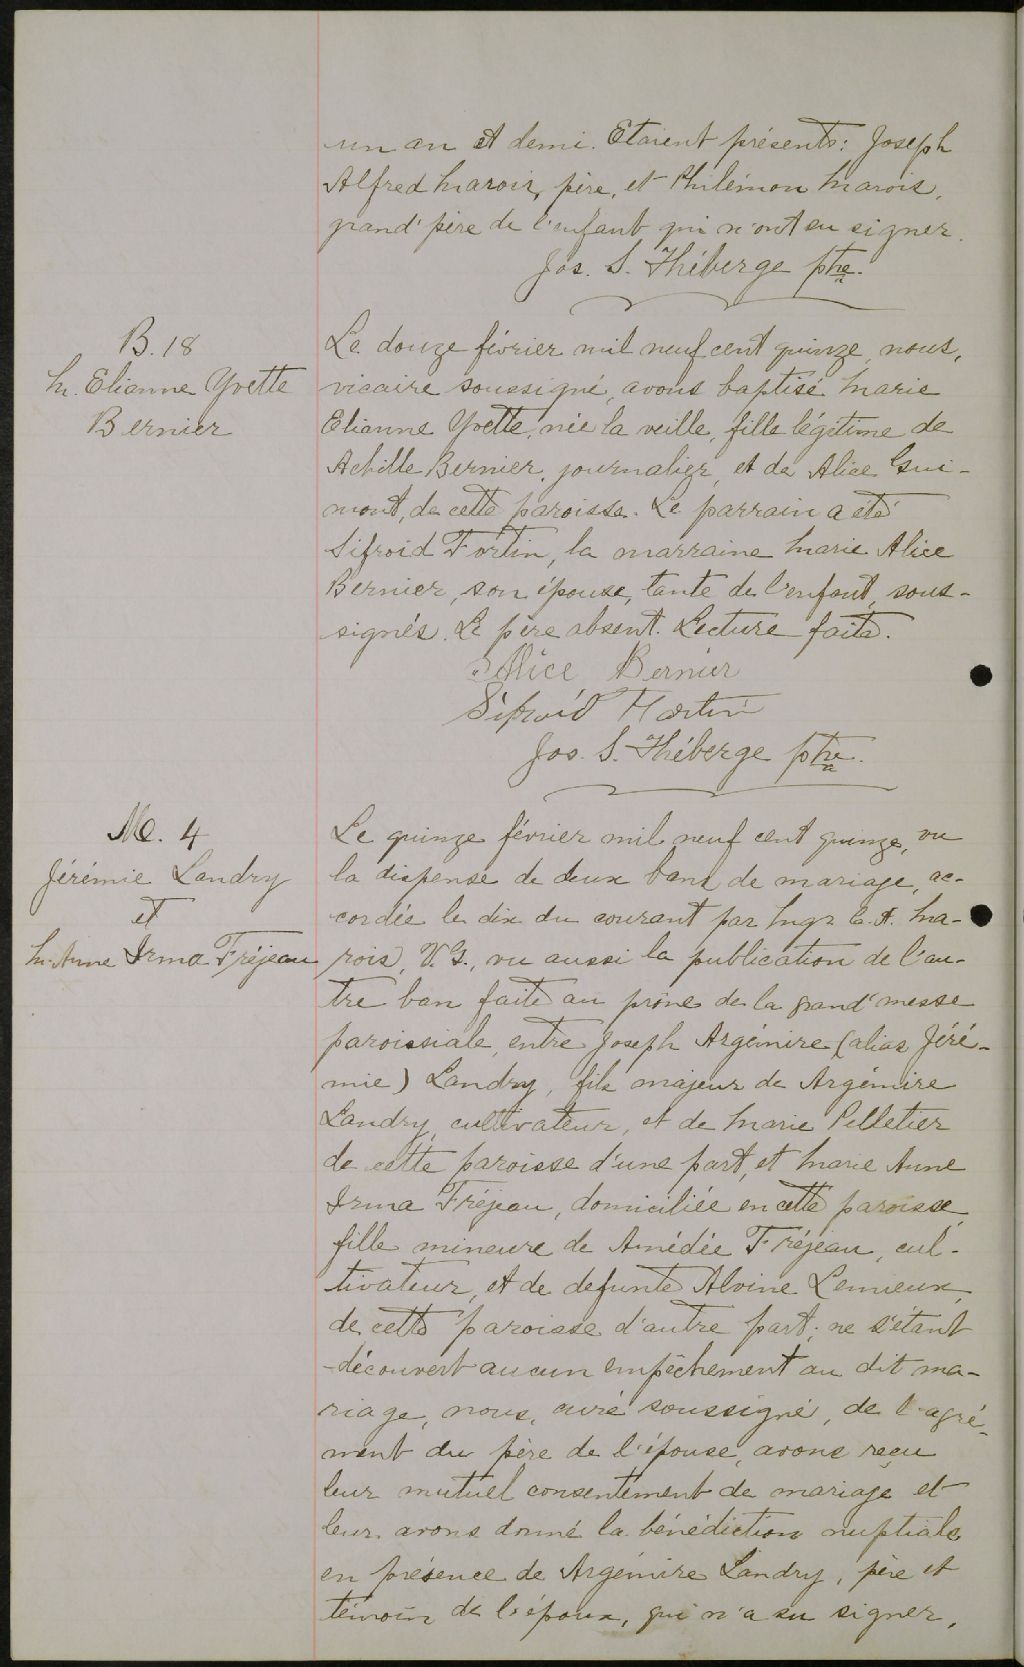 un an et demi. Etaient présents: Joseph
Alfred Marois, père, et Philémon Marois,
grand'père de l'enfant qui n'ont su signer.
Jos. S. Théberge ptre.
B. 18
M. Elianne Yvette
Bernier
Le douze février mil neuf cent quinze, nous,
vicaire soussigné, avons baptisé Marie
Elianne Yvette, née la veille, fille légitime de
Achille Bernier, journalier, et de Alice Gui-
mont, de cette paroisse. Le parrain a été
Sifroid Fortin, la marraine Marie Alice
Bernier, son épouse, tante de l'enfant, sous-
signés. Le père absent. Lecture faite.
Alice Bernier
Sifroid Fortin
Jos. S. Théberge ptre.
M. 4
Jérémie Landry
et
M. Anne Irma Fréjeau
Le quinze février mil neuf cent quinze, vu
la dispense de deux bans de mariage, ac-
cordée le dix du courant par Mgr C. A. Ma-
rois, V. G., vu aussi la publication de l'au-
tre ban faite au prône de la grand'messe
paroissiale, entre Joseph Argémire (alias Jéré-
mie) Landry, fils majeur de Argémire
Landry, cultivateur, et de Marie Pelletier
de cette paroisse d'une part, et Marie Anne
Irma Fréjeau, domiciliée en cette paroisse,
fille mineure de Amédée Fréjeau, cul-
tivateur, et de defunte Alvine Lemieux,
de cette paroisse d'autre part; ne s'étant
découvert aucun empêchement au dit ma-
riage, nous, curé soussigné, de l'agré-
ment du père de l'épouse, avons reçu
leur mutuel consentement de mariage et
leur avons donné la bénédiction nuptiale
en présence de Argémire Landry, père et
témoin de l'époux, qui n'a su signer,